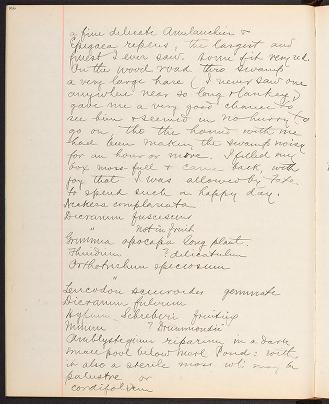 a fine delicate Amelanchier &
Epigaea repens, the largest and
finest I ever saw. Some fit very red.
On the wood road thro swamp
a very large hare (I never saw one
anywhere near so long & lanky)
gave me a very good chance to
see him & seemed in no hurry to
go on, tho the hound with me
had been making the swamp noisy
for an hour or more. I filled my
box moss-full & came back with
joy that I was allowed by Fate
to spend such a happy day.
Neckera complanata
Dicranum fuscescens
" not in fruit
Grimmia apocarpa long plant.
Thuidium ? delicatulum
Orthotrichum speciosum
"
Leucodon sciuroides gemmate
Dicranum fulvum
Hypnum Schreberi fruiting
Mnium ? Drummondii
Amblystegium riparium in a dark
pool below Marl Pond: with
it also a sterile moss wh. may be
palustre or
cordifolium